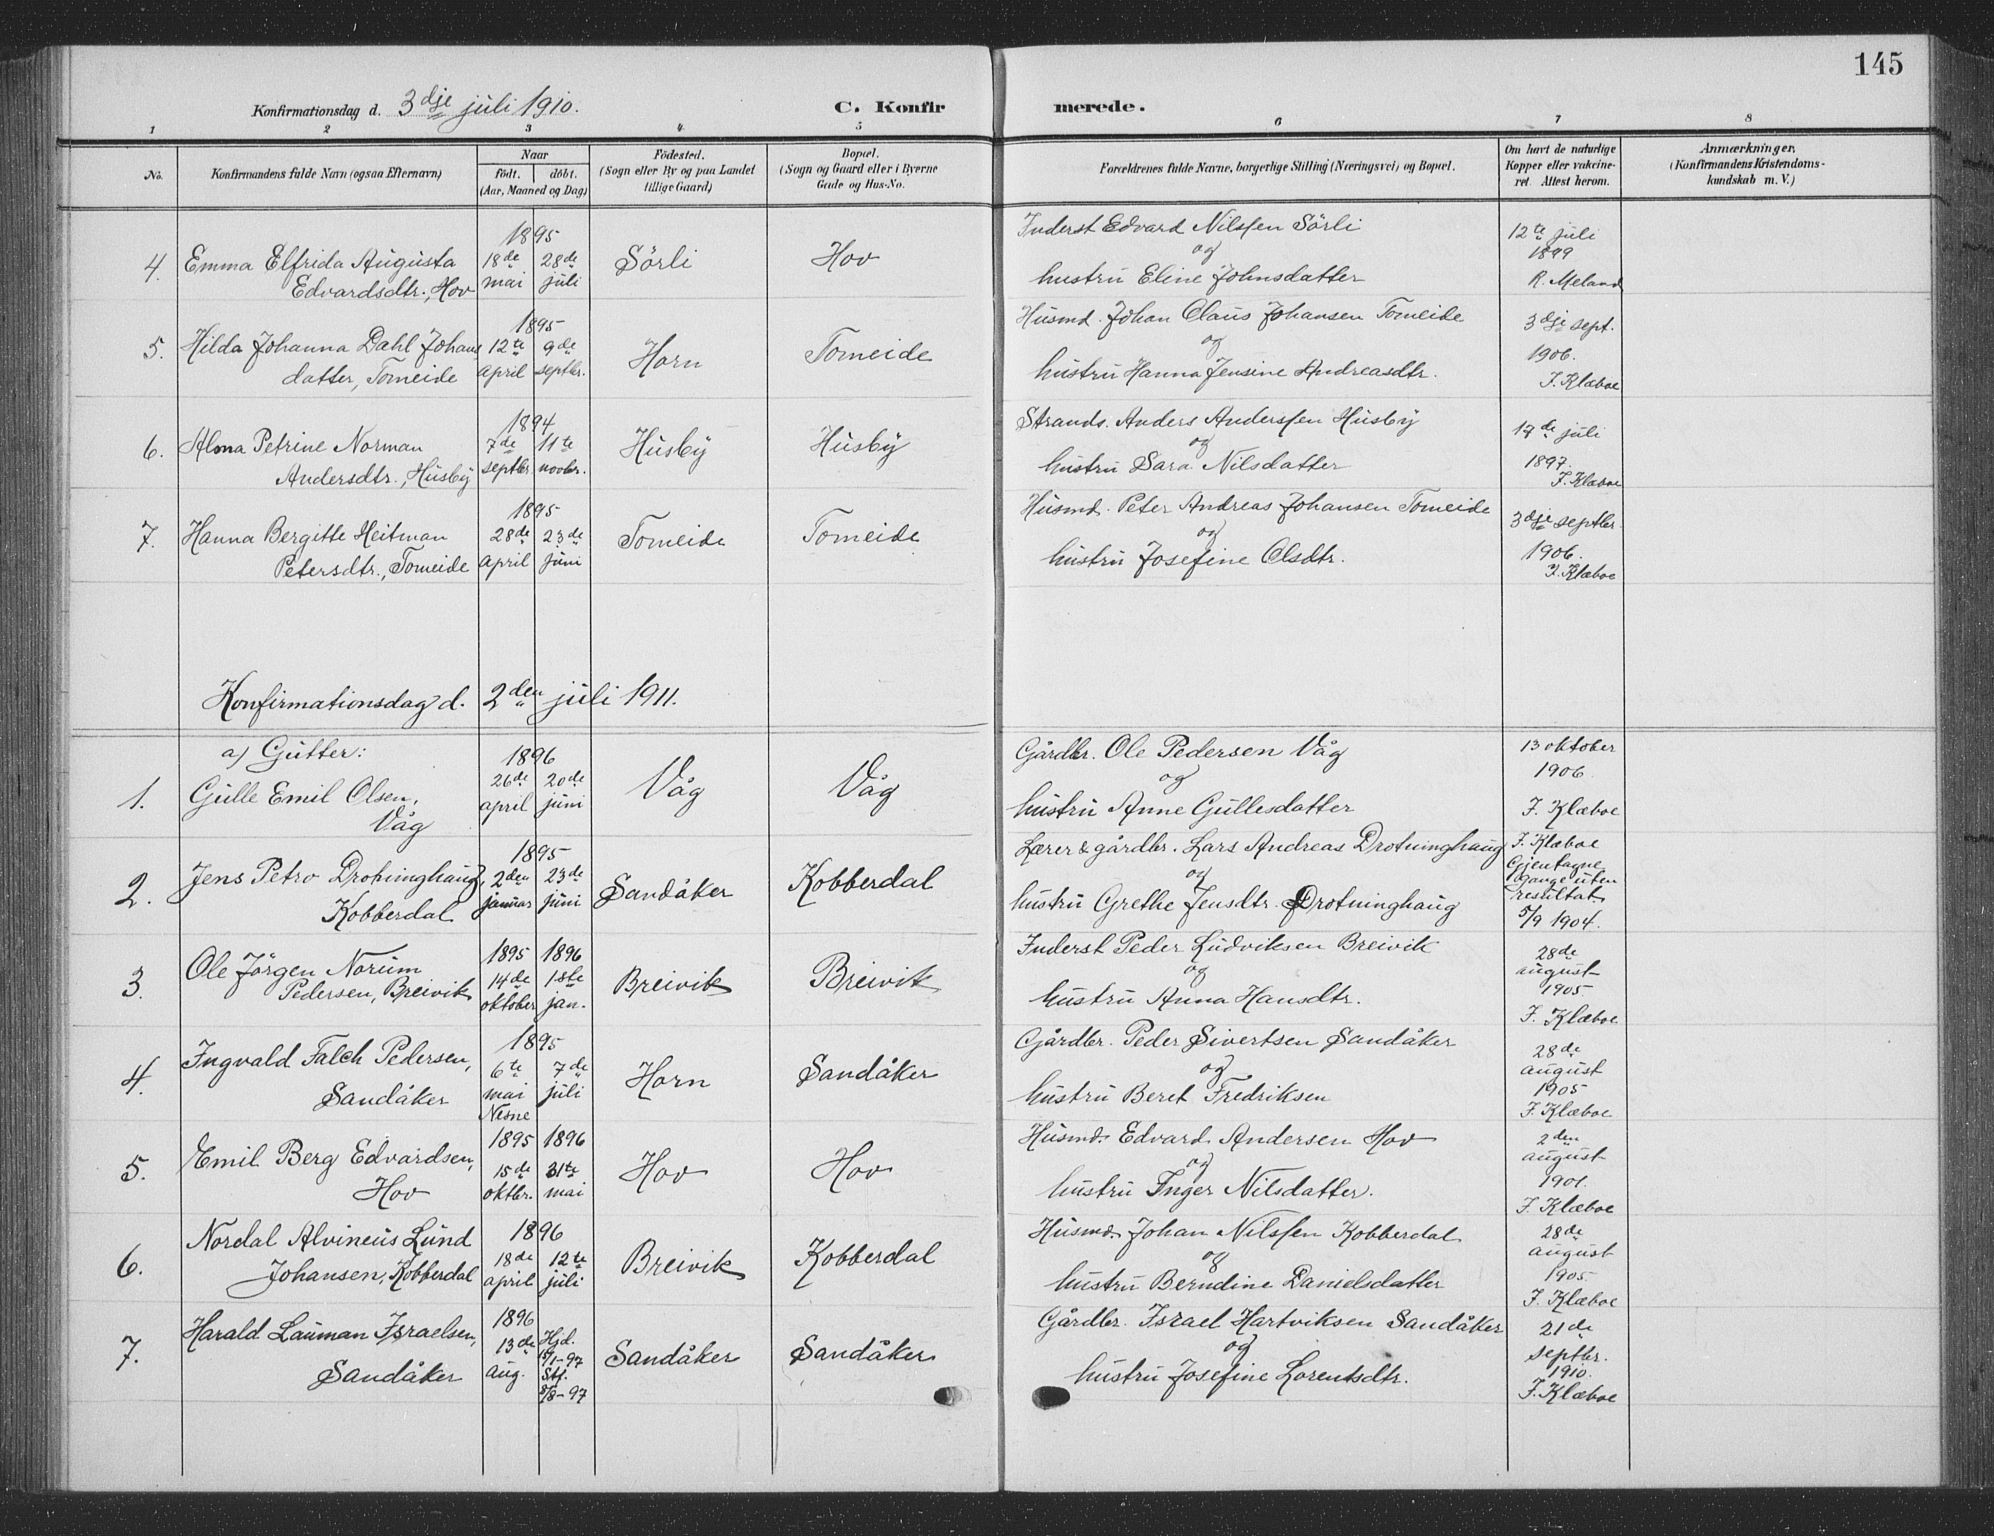 145
Konfirmationsdag d. 3dje juli 1910.
C. Konfirmerede.
1 2 3 4 5 6 7 8
No.
Konfirmandens fulde Navn (ogsaa Efternavn)
Naar
født. døbt.
(Aar, Maaned og Dag)
Fødested.
(Sogn eller By og paa Landet
tillige Gaard)
Bopæl.
(Sogn og Gaard eller i Byerne
Gade og Hus-No.
Forældrenes fulde Navne, borgerlige Stilling (Næringsvei) og Bopæl.
Om havt de naturlige
Kopper eller vakcine-
ret. Attest herom.
Anmærkninger.
(Konfirmandens Kristendoms-
kundskab m. V.)
4. Emma Elfrida Augusta
Edvardsdtr., Hov
1895
18de 28de
mai juli
Sörli
Hov
Inderst Edvard Nilssen Sörli
og
hustru Eline Johnsdatter
12te juli
1899
R. Meland
5. Hilda Johanna Dahl Johans
datter, Tomeide
1895
12te 9de
april septbr.
Horn
Tomeide
Husmd. Johan Claus Johansen Tomeide
og
hustru Hanna Jensine Andreasdtr.
3dje sept.
1906.
J. Klæboe
6. Alma Petrine Norman
Andersdtr., Husby
1894
7de 11te
septbr novbr.
Husby
Husby
Strands. Anders Anderssen Husby
og
hustru Sara Nilsdatter
19de juli
1897.
J. Klæboe
7. Hanna Bergitte Heitman
Petersdtr., Tomeide
1895
28de 23de
april juni
Tomeide
Tomeide
Husmd. Peter Andreas Johansen Tomeide
og
hustru Josefine Olsdtr.
3dje septbr.
1906.
J. Klæboe
Konfirmationsdag d. 2den juli 1911.
a) Gutter:
1. Gulle Emil Olsen,
Våg
1896
26de 20de
april juni
Våg
Våg
Gårdbr. Ole Pedersen Våg
og
hustru Anne Gullesdatter
13 oktober
1906
J. Klæboe
2. Jens Petro Drotninghaug,
Kobberdal
1895
2den 23de
januar juni
Sandåker
Kobberdal
Lærer & gårdbr. Lars Andreas Drotninghaug
og
hustru Grethe Jensdtr. Drotninghaug
J. Klæboe
Gjentagne
gange uten
resultat
5/9 1904.
3. Ole Jörgen Norum
Pedersen, Breivik
1895 1896
14de 1ste
oktober jan.
Breivik
Breivik
Inderst Peder Ludviksen Breivik
og
hustru Anna Hansdtr.
28de
august
1905
J. Klæboe
4. Ingvald Falch Pedersen,
Sandåker
1895
6te 7de
mai juli
Nesne
Horn
Sandåker
Gårdbr. Peder Sivertsen Sandåker
og
hustru Beret Fredriksen
28de
august
1905
J. Klæboe
5. Emil Berg Edvardsen,
Hov
1895 1896
15de 31te
oktbr. mai
Hov
Hov
Husmd. Edvard Andersen Hov
og
hustru Inger Nilsdatter.
2den
august
1901.
J. Klæboe
6. Nordal Alvineus Lund
Johansen, Kobberdal
1896
18de 12te
april juli
Breivik
Kobberdal
Husmd. Johan Nilssen Kobberdal
og
hustru Berndine Danielsdatter
28de
august
1905
J. Klæboe
7. Harald Lauman Israelsen,
Sandåker
1896
13de
aug.
Hjd.
15/1-97
Stf.
8/8-97
Sandåker
Sandåker
Gårdbr. Israel Hartviksen Sandåker
og
hustru Josefine Lorentsdtr.
21de
septbr.
1910.
J. Klæboe